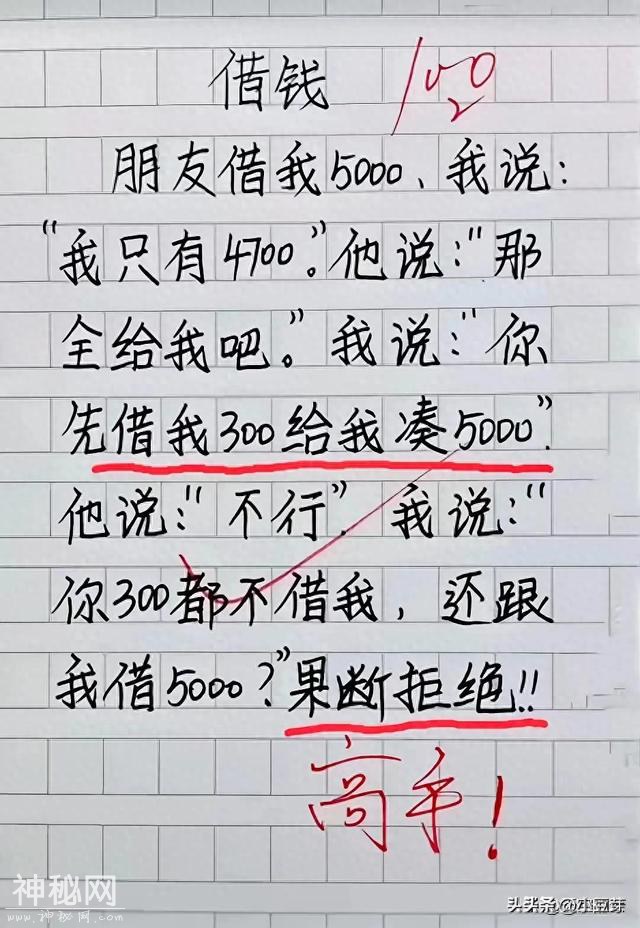 借钱
100
朋友借我5000、我说:
“我只有4700。”他说:“那
全给我吧。”我说:“你
先借我300给我凑5000”.
他说:“不行”. 我说:“
你300都不借我, 还跟
我借5000?”果断拒绝!!
高手!
神秘网
www.神秘网.com
头条@